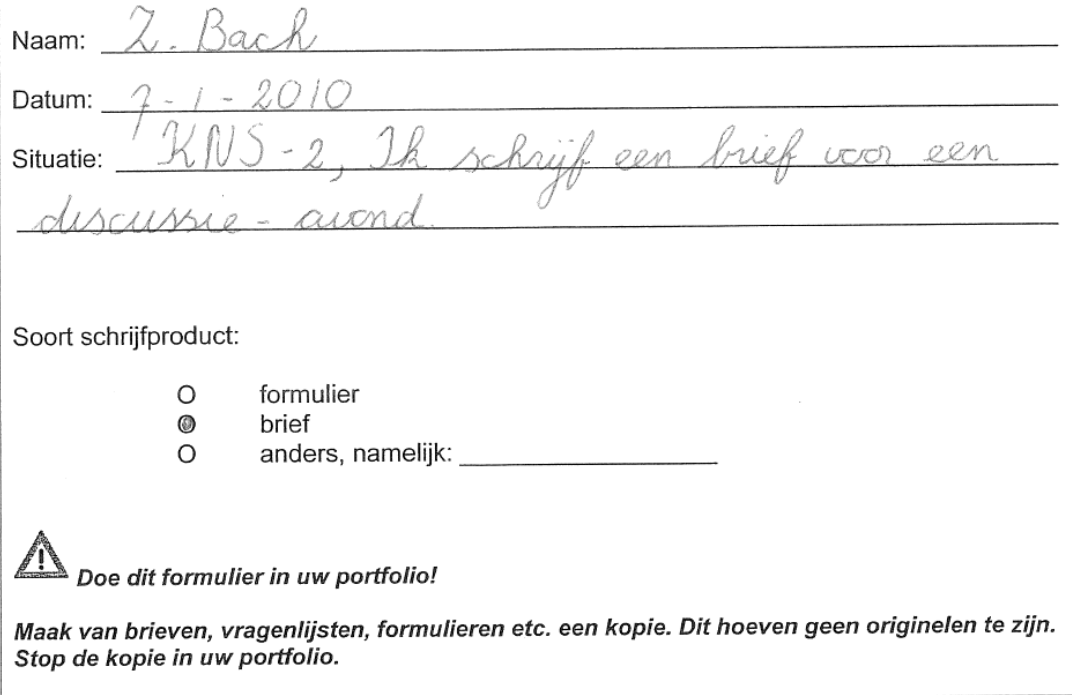 Naam: Z. Bach
Datum: 7-1-2010
Situatie: KNS-2, Ik schrijf een brief voor een
discussie-avond.
Soort schrijfproduct:
O formulier
O brief
O anders, namelijk:
Doe dit formulier in uw portfolio!
Maak van brieven, vragenlijsten, formulieren etc. een kopie. Dit hoeven geen originelen te zijn.
Stop de kopie in uw portfolio.